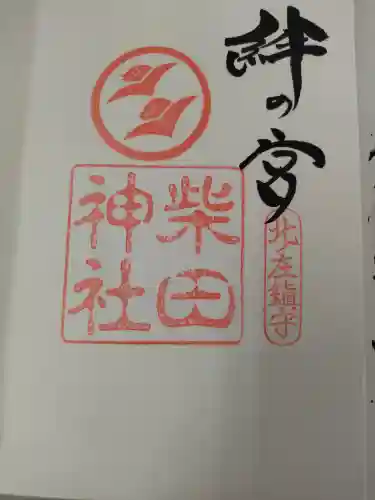 絆の宮
北左鎮守
柴田
神社